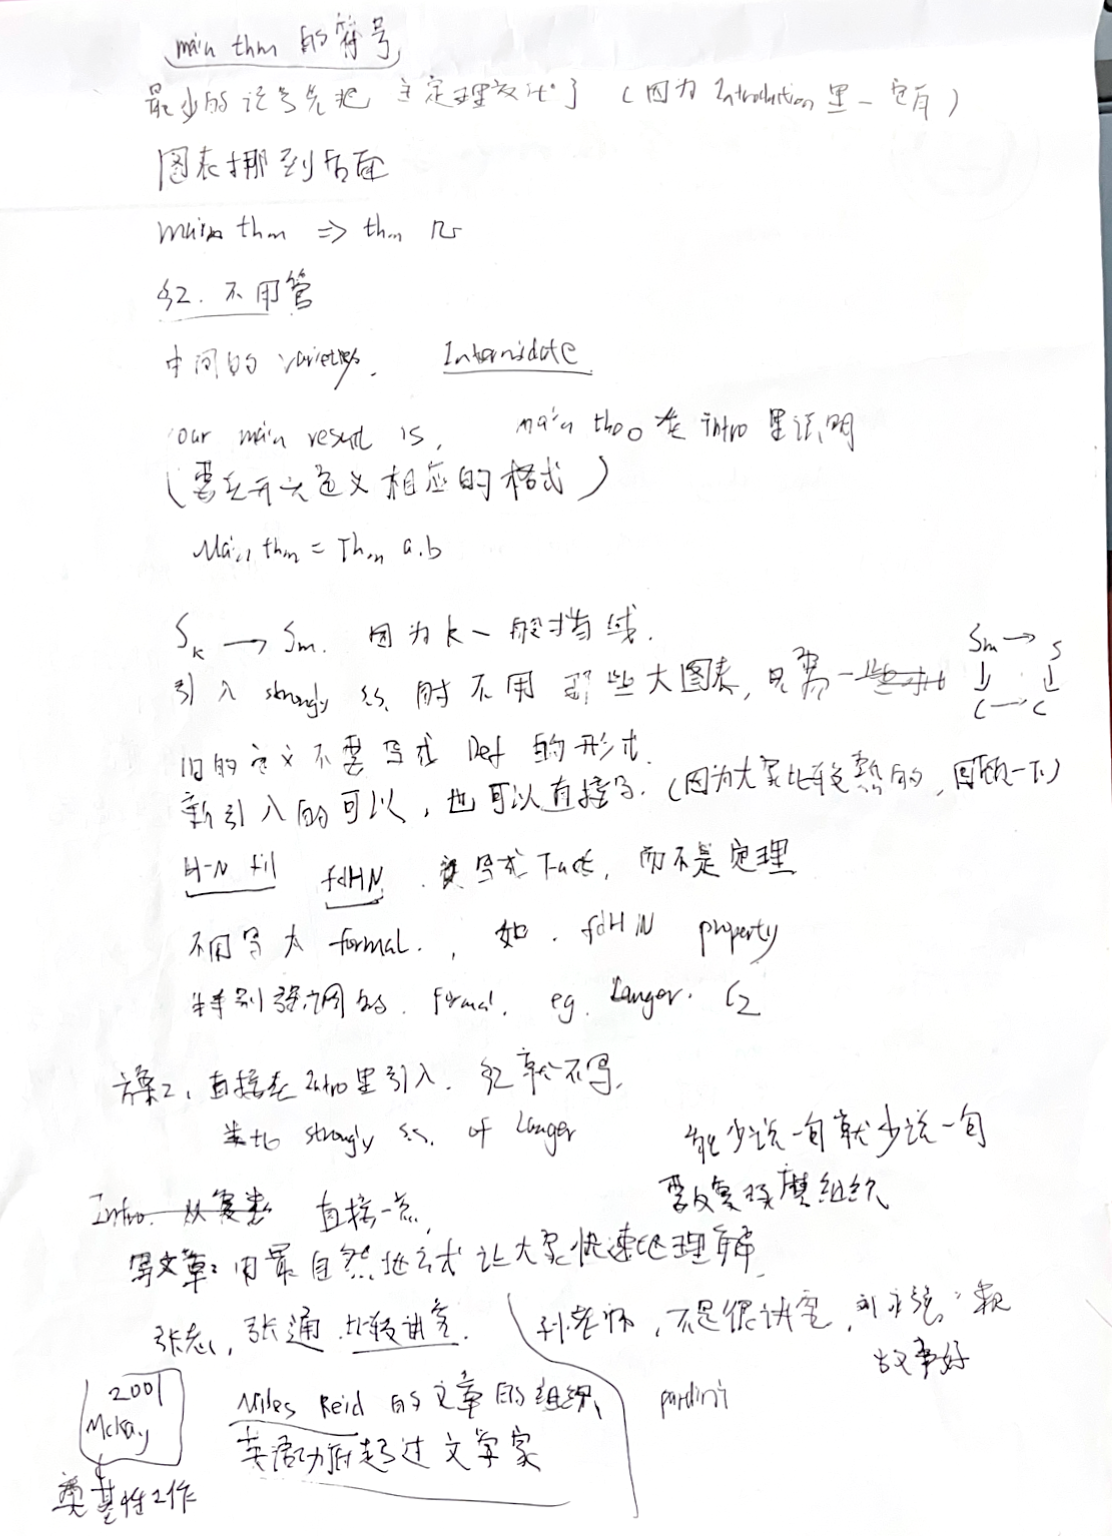 main thm 的符号
最少的记号先把 主定理交代了 (因为 Introduction 里一定有)
图表挪到后面
main thm ⇒ thm 几
§2. 不用管
中间的 varieties. Intermidate
our main result is, main thm 在 intro 里说明
(要在开头定义相应的格式)
Main thm = Thm a.b
S_k → S_m. 因为 k 一般指域.
引入 strongly s.s. 时不用那些大图表, 只需一
S_m → S
↓ ↓
C → C
旧的定义不要写成 Def 的形式.
新引入的可以, 也可以直接写. (因为大家比较熟的, 回顾一下)
H-N fil fdHN. 写成 Fact, 而不是定理
不用写太 formal., 如. fdHN property
特别强调的. formal. eg. Langer.
方案2, 直接在 Intro 里引入. §2 就不写.
strongly s.s. of Langer
能少说一句就少说一句
要反复琢磨组织
Intro. 直接一点,
写文章: 用最自然地方式让大家快速地理解
张志, 张通 比较讲究.
孙老师, 不是很讲究,
故事好
2001
McKay
奠基性工作
Miles Reid 的文章的组织
英语功底超过文学家
pardini